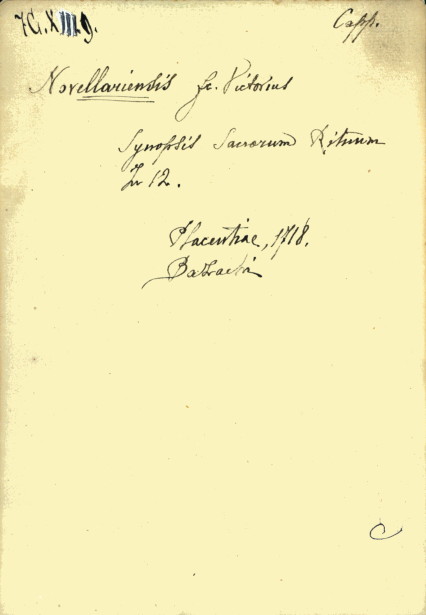 7G.XIII.9. Capp.
Novellariensis fr. Victorius
Synopsis Sacrorum Rituum
In 12.
Placentiae, 1718.
Bazachi
C